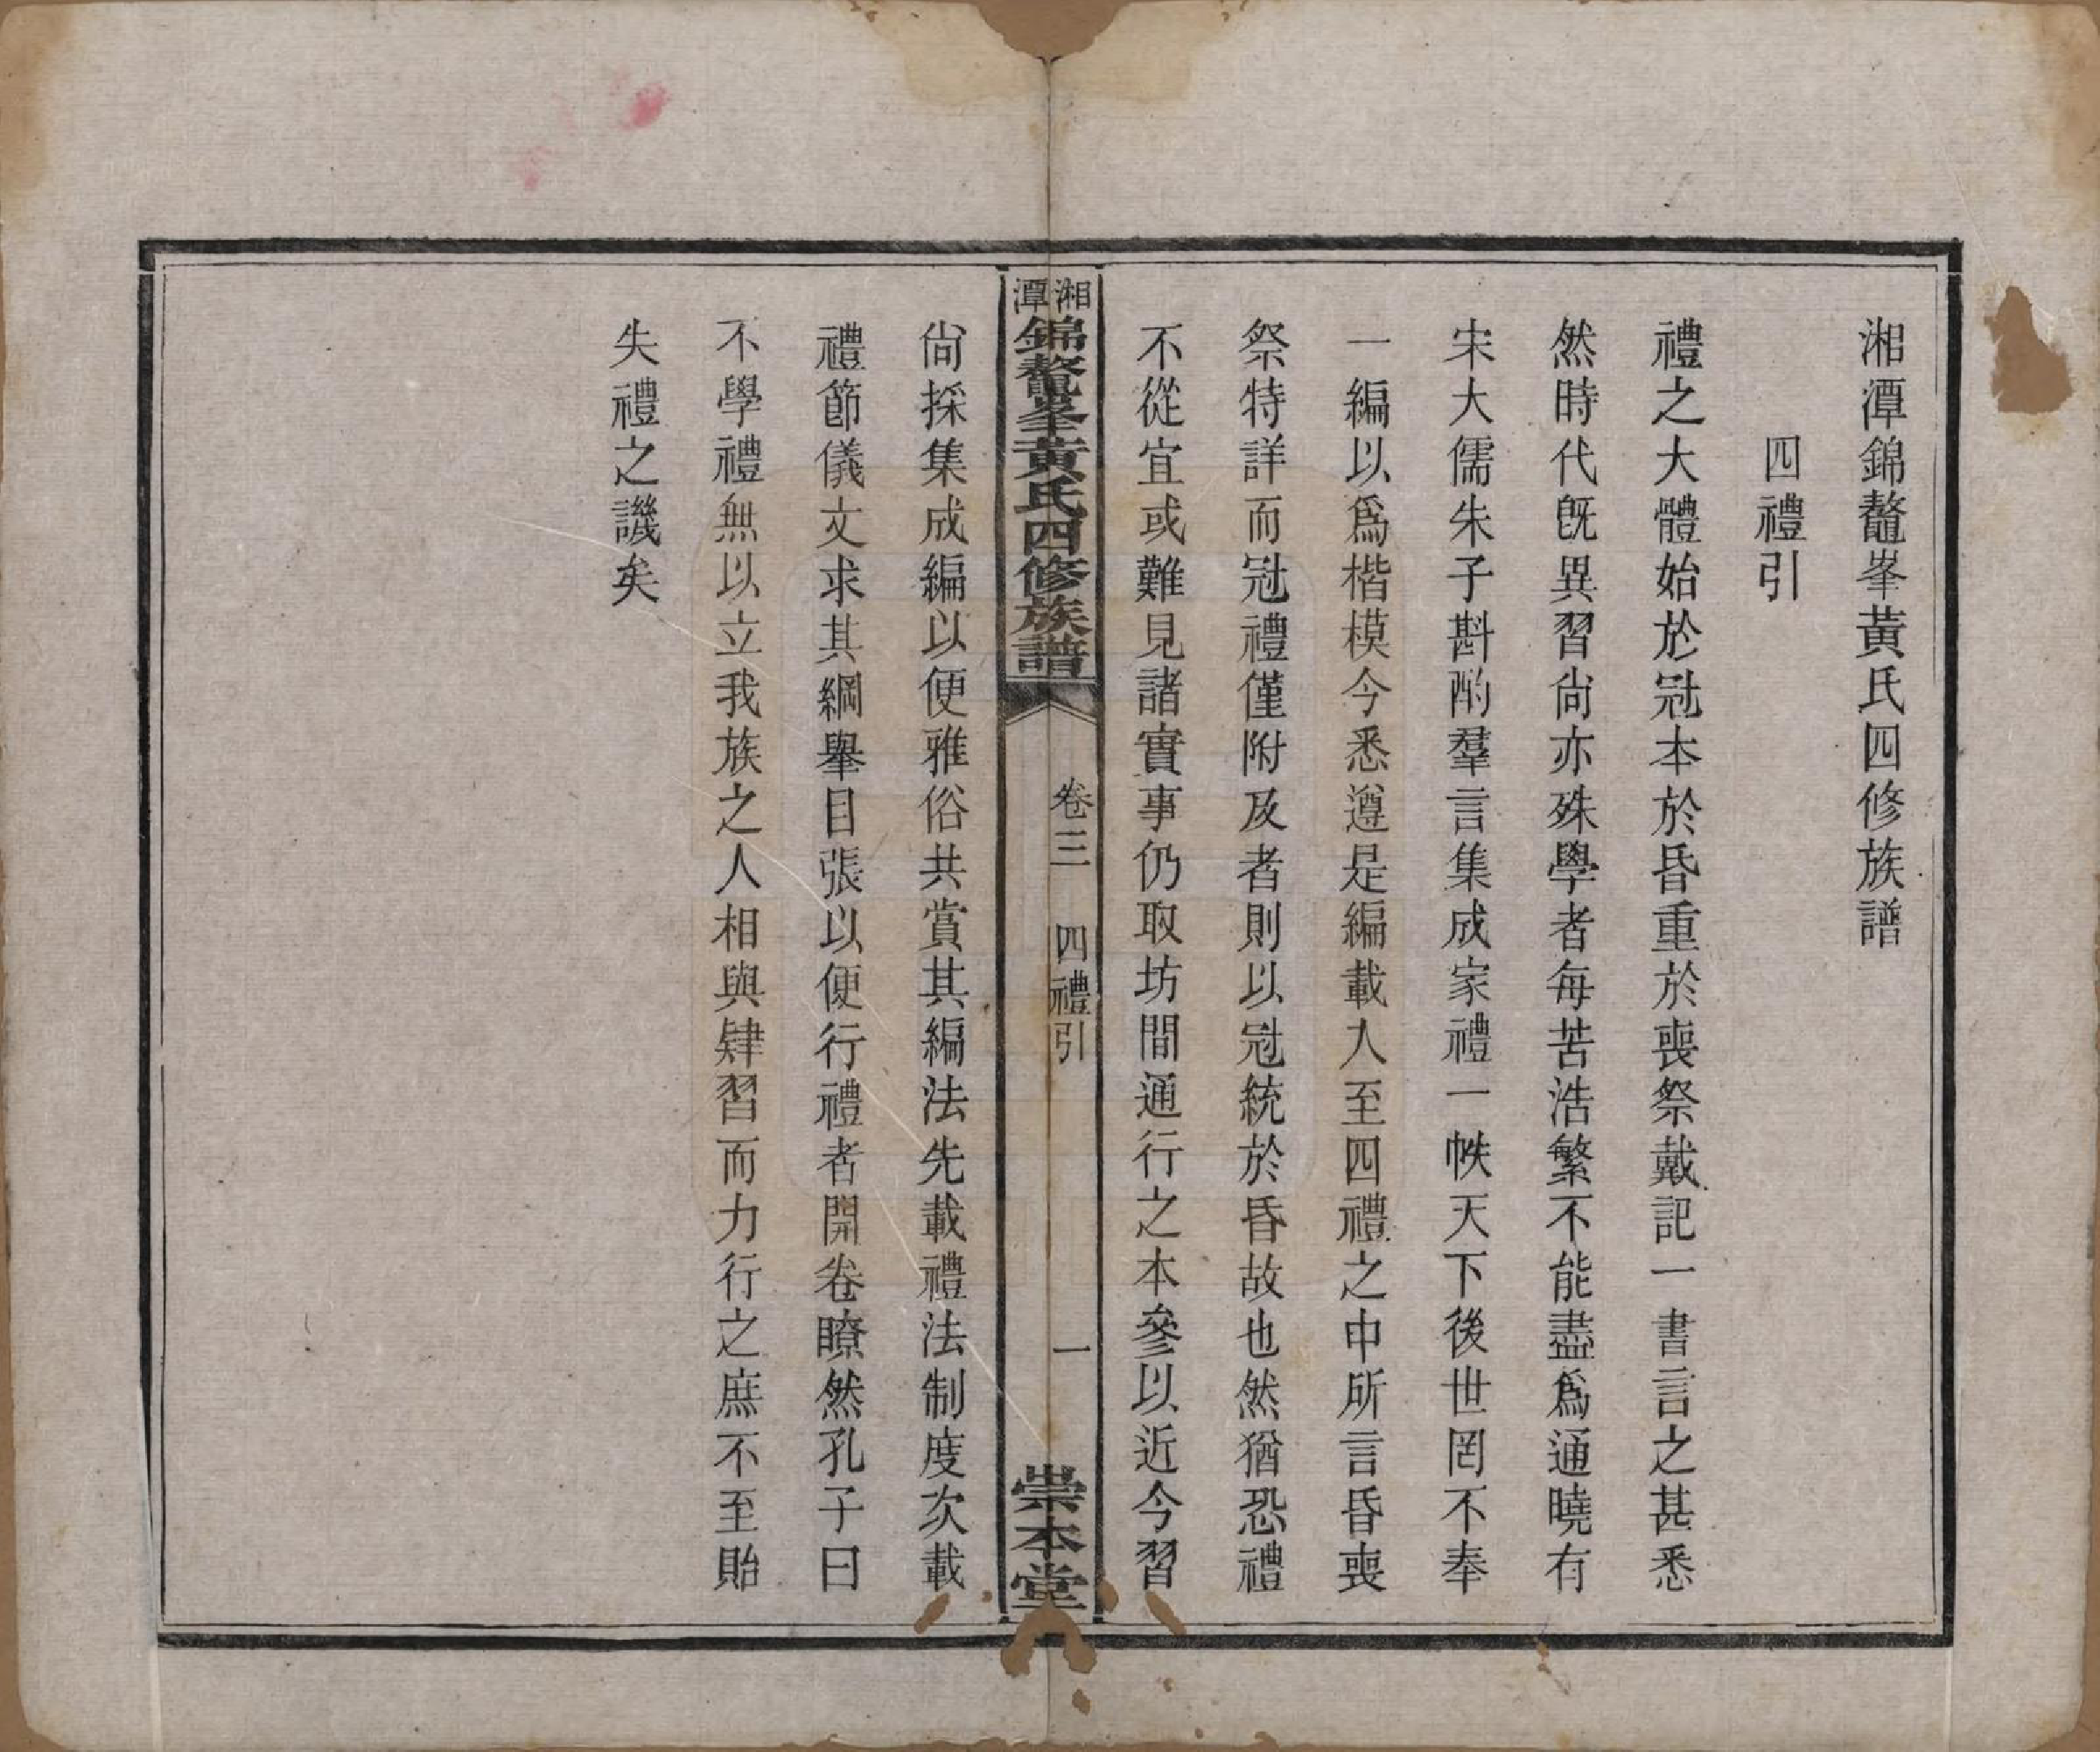 湘潭錦鼇峯黃氏四修族譜
四禮引
禮之大體始於冠本於昏重於喪祭戴記一書言之甚悉
然時代旣異習尙亦殊學者每苦浩繁不能盡爲通曉有
宋大儒朱子斟酌羣言集成家禮一帙天下後世罔不奉
一編以爲楷模今悉遵是編載入至四禮之中所言昏喪
祭特詳而冠禮僅附及者則以冠統於昏故也然猶恐禮
不從宜或難見諸實事仍取坊間通行之本參以近今習
湘潭錦鼇峯黃氏四修族譜
卷三
四禮引
一
崇本堂
尙採集成編以便雅俗共賞其編法先載禮法制度次載
禮節儀文求其綱舉目張以便行禮者開卷瞭然孔子曰
不學禮無以立我族之人相與肄習而力行之庶不至貽
失禮之譏矣